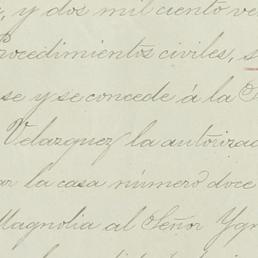 , y dos mil ciento ve
rocedimientos civiles, s
se y se concede á la S
Velazquez la autorizac
ar la casa número doce
Magnolia al Señor Ygn